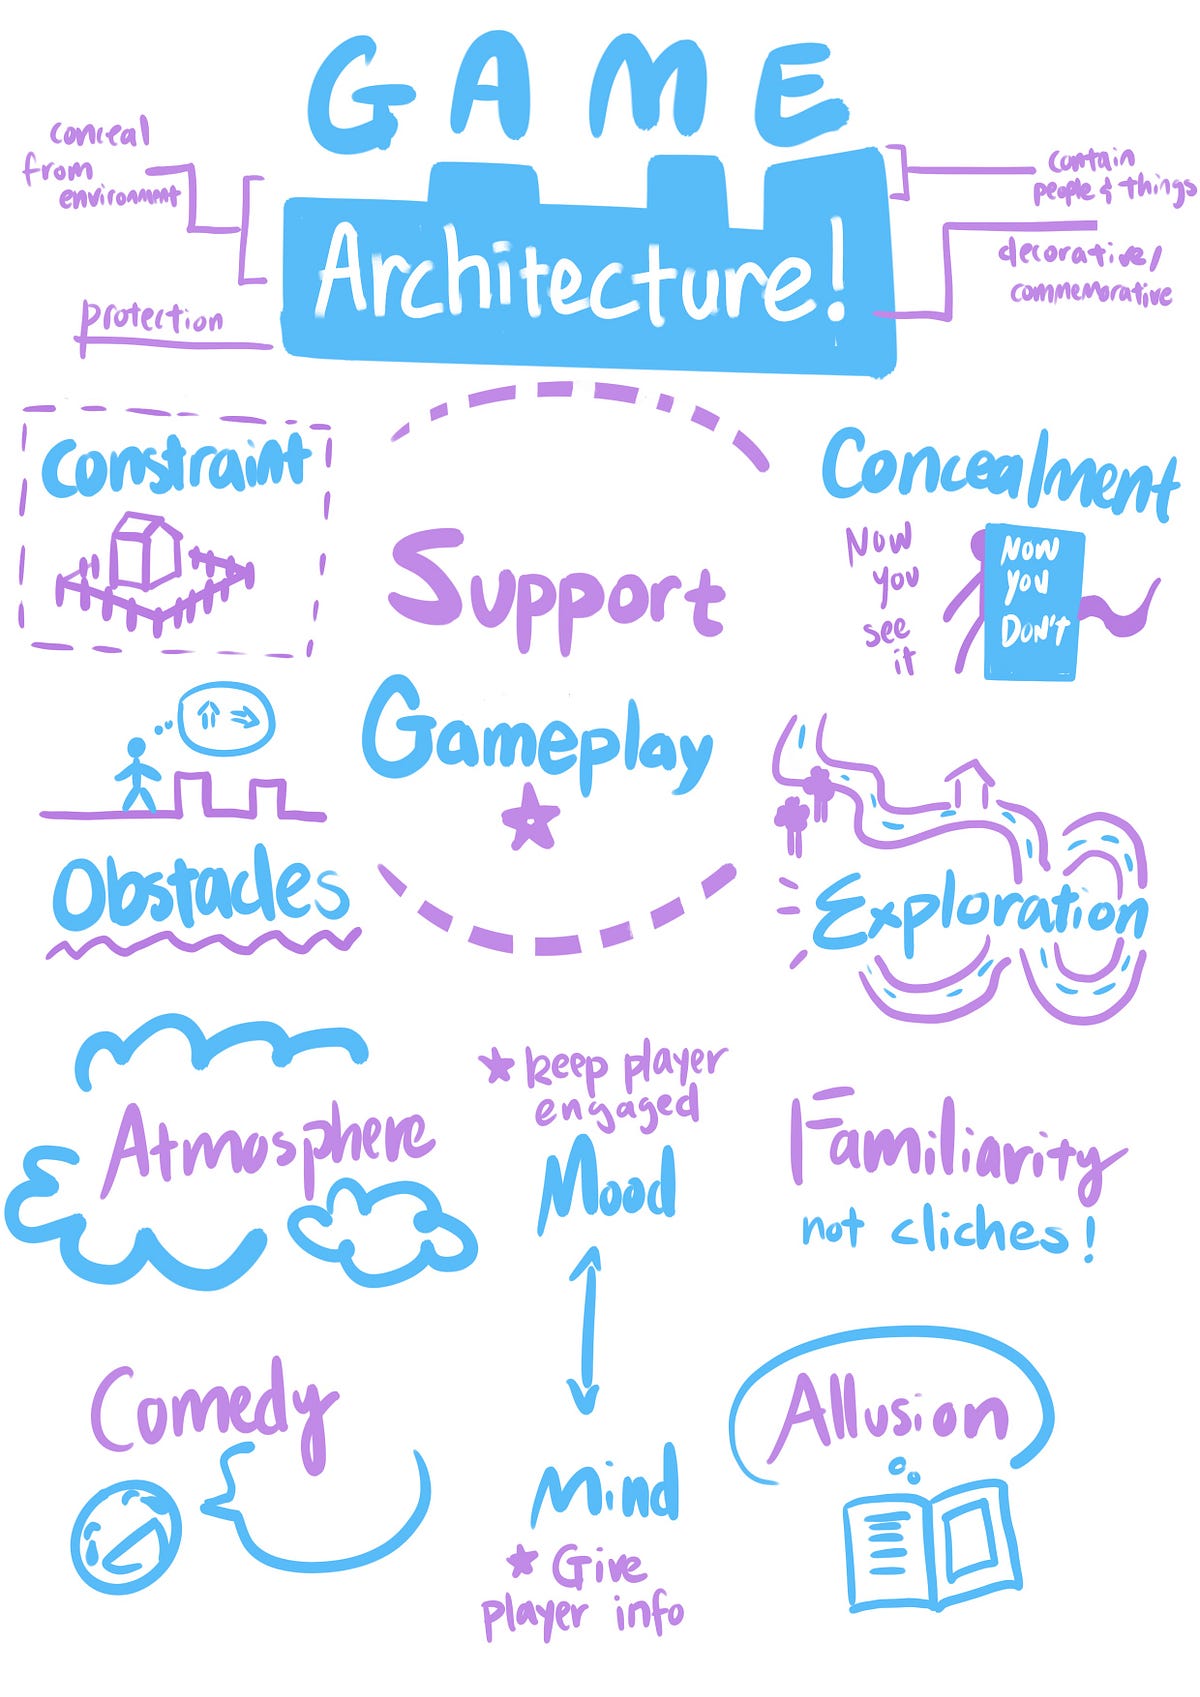 GAME
Architecture!
conceal
from
environment
protection
contain
people & things
decorative/
commemorative
Constraint
Support
Gameplay
Concealment
Now
you
see
it
Now
you
Don't
Obstacles
Exploration
Atmosphere
keep player
engaged
Mood
Familiarity
not cliches!
Comedy
Mind
Give
player info
Allusion